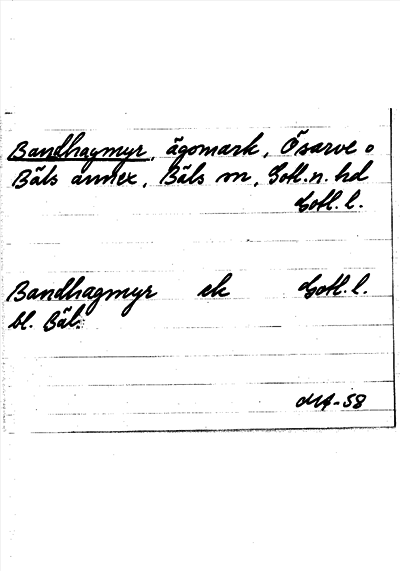 Bandhagmyr, ägomark, Ösarve o
Bäls annex, Bäls sn, Gotl. n. hd
Gotl. l.
Bandhagmyr ek Gotl. l.
bl. Bäl.
MA-58